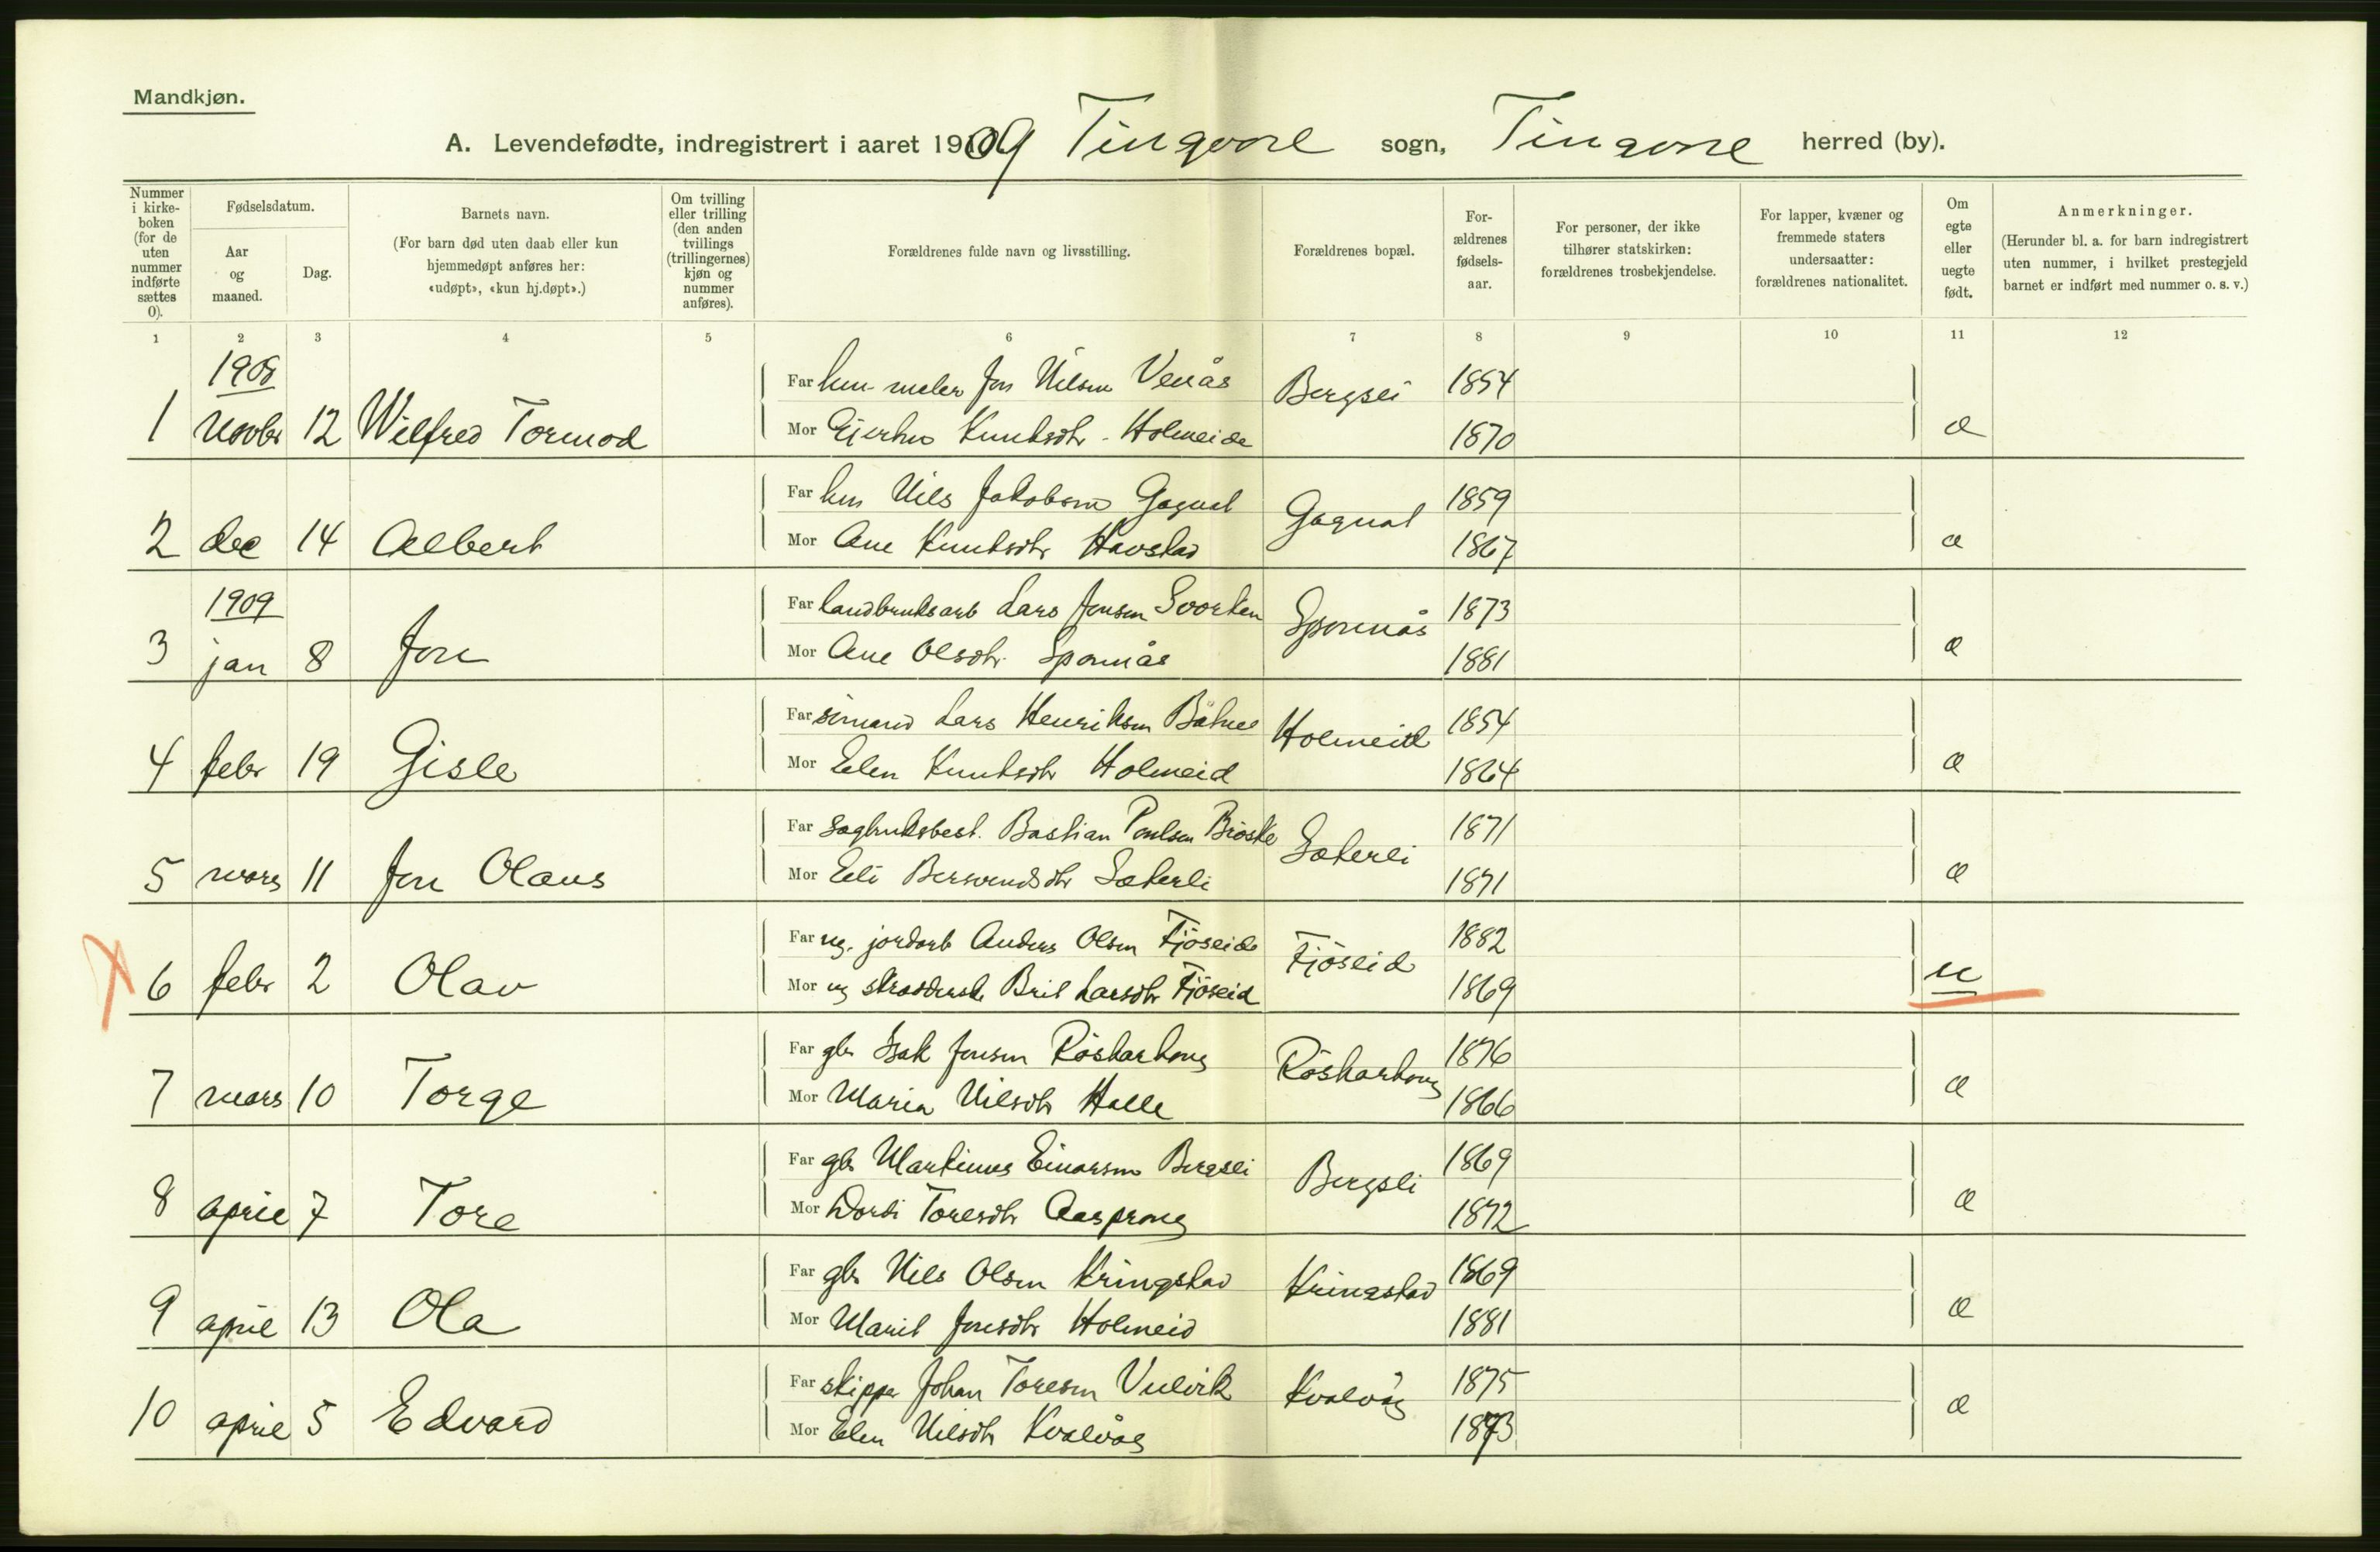 Mandkjøn.
A. Levendefødte, indregistrert i aaret 1909 Tingvoll sogn, Tingvoll herred (by).
Nummer i kirke-boken (for de uten nummer indførte sættes 0).
Fødselsdatum.
Aar og maaned.
Dag.
Barnets navn.
(For barn død uten daab eller kun hjemmedøpt anføres her: «udøpt», «kun hj.døpt».)
Om tvilling eller trilling (den anden tvillings (trillingernes) kjøn og nummer anføres).
Forældrenes fulde navn og livsstilling.
Forældrenes bopæl.
For-ældrenes fødsels-aar.
For personer, der ikke tilhører statskirken: forældrenes trosbekjendelse.
For lapper, kvæner og fremmede staters undersaatter: forældrenes nationalitet.
Om egte eller uegte født.
Anmerkninger.
(Herunder bl. a. for barn indregistrert uten nummer, i hvilket prestegjeld barnet er indført med nummer o. s. v.)
1 2 3 4 5 6 7 8 9 10 11 12
1908
Far hm. maler Jon Nilsen Venås Bergsli 1854
1 novbr 12 Wilfred Tormod Mor Knutsdtr. Holmeide 1870 æ
Far hm Nils Jakobsen Gagnat Gagnat 1859
2 dec 14 Albert Mor Ane Knutsdtr Havstad 1867 æ
1909
Far landbruksarb Lars Jonsen Svorken Sponnås 1873
3 jan 8 Jon Mor Ane Olsdtr. Sponnås 1881 æ
Far sømand Lars Henriksen Holmeid 1854
4 febr 19 Gisle Mor Elen Knutsdtr Holmeid 1864 æ
Far Sagbruksbest. Bastian Paulsen Brøske Sæterli 1871
5 mars 11 Jon Olaus Mor Eli Bersvendsdtr Sæterli 1871 æ
Far ug. jordarb Anders Olsen Fjøseide Fjøseid 1882
6 febr 2 Olav Mor ug skrædderske Brit Larsdtr Fjøseid 1869 u
Far gbr Isak Jonsen Røskarhaug Røskarhaug 1876
7 mars 10 Torge Mor Maria Nilsdtr Halle 1866 æ
Far gbr Martinus Einarsen Bergsli Bergsli 1869
8 april 7 Tore Mor Dordi Toresdtr Aasprong 1872 æ
Far gbr Nils Olsen Kringstad Kringstad 1869
9 april 13 Ola Mor Marit Jonsdtr Holmeid 1881 æ
Far skipper Johan Toresen Vulvik Kvalvåg 1875
10 april 5 Edvard Mor Elen Nilsdtr Kvalvåg 1873 æ